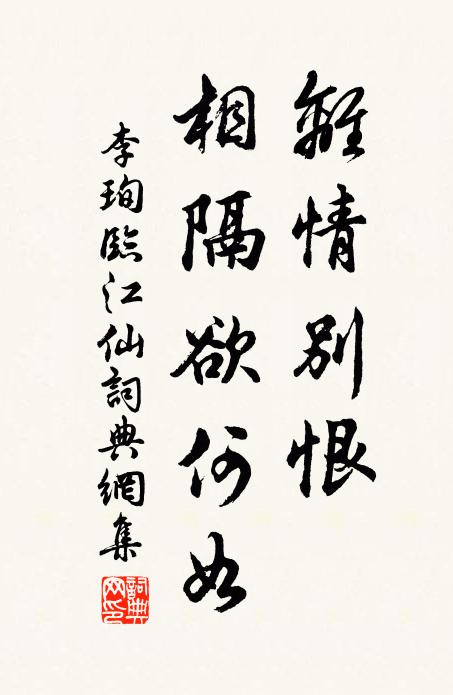 離情別恨
相隔欲何如
李珣臨江仙詞典網集
詞典網印